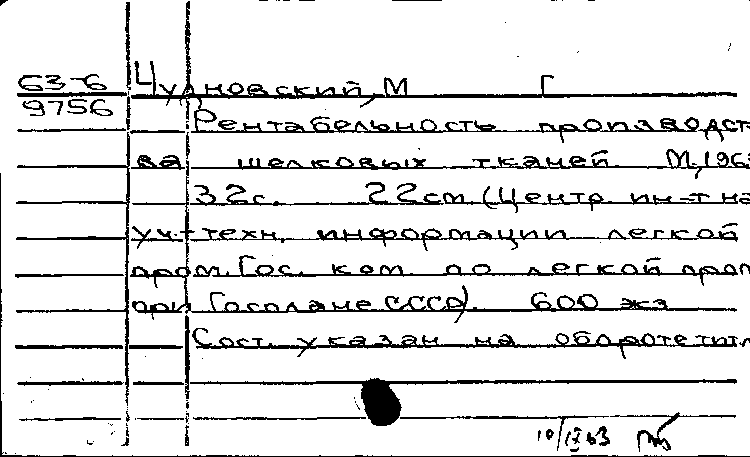 63-6 Чудновский, М Г
9756
Рентабельность производст-
ва шелковых тканей М., 196
32с. 22см (Центр. ин-т на
уч.-техн. информации легкой
пром. Гос. ком. по легкой пром
при Госплане СССР). 600 экз
Сост. указан на обороте тит.
10/IX 63